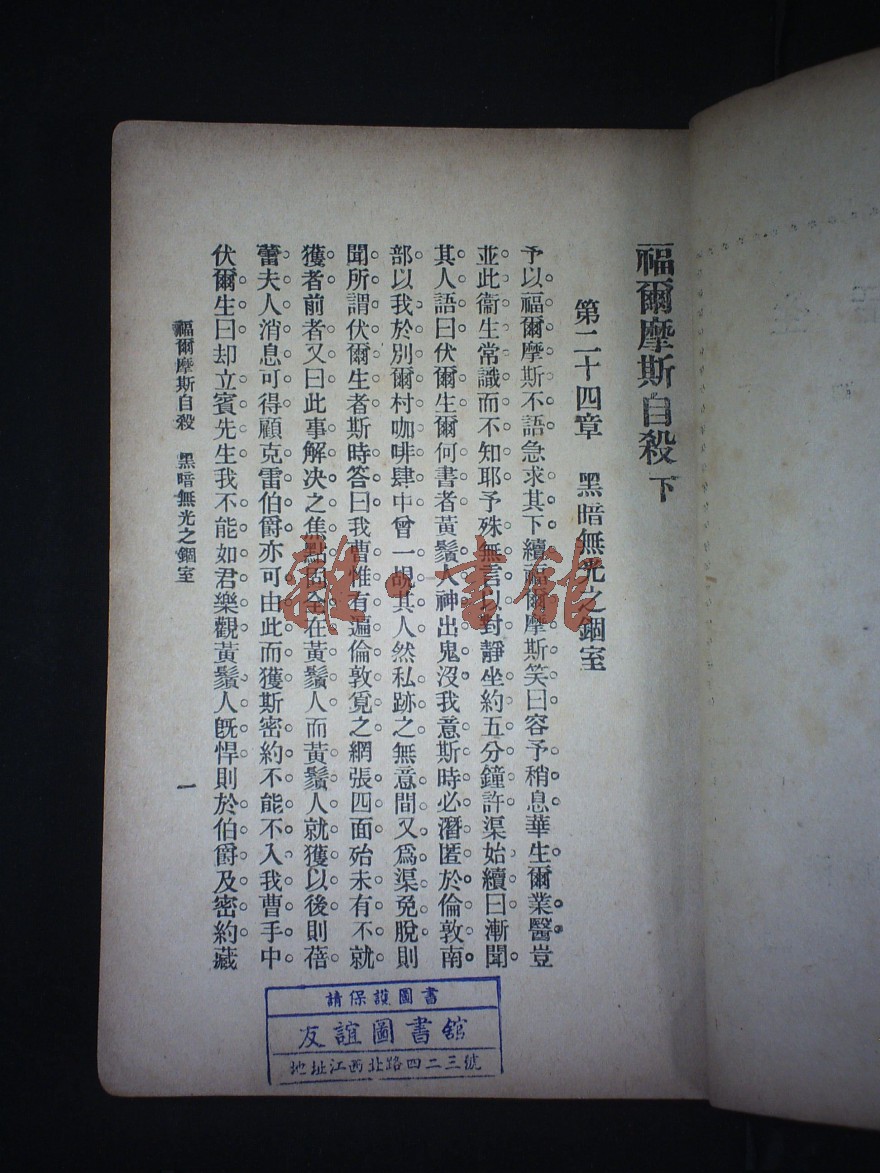 福爾摩斯自殺 下
第二十四章 黑暗無光之錮室
予以福爾摩斯不語急求其下續福爾摩斯笑曰容予稍息華生爾業醫豈
並此衞生常識而不知耶予殊無言以對靜坐約五分鐘許渠始續曰漸聞
其人語曰伏爾生爾何書者黃鬚人神出鬼沒我意斯時必潛匿於倫敦南
部以我於別爾村咖啡肆中曾一覘其人然私跡之無意間又爲渠免脫則
聞所謂伏爾生者斯時答曰我曹惟有遍倫敦覓之網張四面殆未有不就
獲者前者又曰此事解決之焦點固全在黃鬚人而黃鬚人就獲以後則蓓
蕾夫人消息可得顧克雷伯爵亦可由此而獲斯密約不能不入我曹手中
伏爾生曰却立賓先生我不能如君樂觀黃鬚人旣悍則於伯爵及密約藏
福爾摩斯自殺 黑暗無光之錮室
一
雜·書館
請保護圖書
友誼圖書館
地址江西北路四二三號